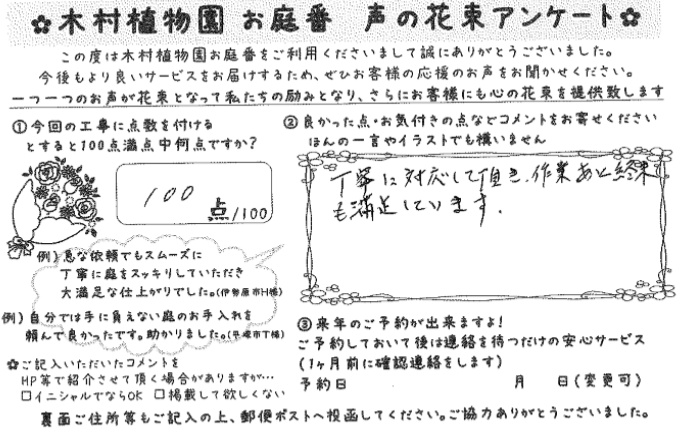 ✿木村植物園 お庭番 声の花束アンケート✿
この度は木村植物園お庭番をご利用くださいまして誠にありがとうございました。
今後もより良いサービスをお届けするため、ぜひお客様の応援のお声をお聞かせください。
一つ一つのお声が花束となって私たちの励みとなり、さらにお客様にも心の花束を提供致します
①今回の工事に点数を付ける
とすると100点満点中何点ですか?
100
点/100
例)急な依頼でもスムーズに
丁寧に庭をスッキリしていただき
大満足な仕上がりでした。(伊勢原市H様)
例)自分では手に負えない庭のお手入れを
頼んで良かったです。助かりました。(平塚市T様)
✿ご記入いただいたコメントを
HP等で紹介させて頂く場合がありますが…
□イニシャルでならOK □掲載して欲しくない
②良かった点・お気付きの点などコメントをお寄せください
ほんの一言やイラストでも構いません
丁寧に対応して頂き、作業あと
も満足しています。
③来年のご予約が出来ますよ!
ご予約しておいて後は連絡を待つだけの安心サービス
(1ヶ月前に確認連絡をします)
予約日 月 日(変更可)
裏面ご住所等もご記入の上、郵便ポストへ投函してください。ご協力ありがとうございました。